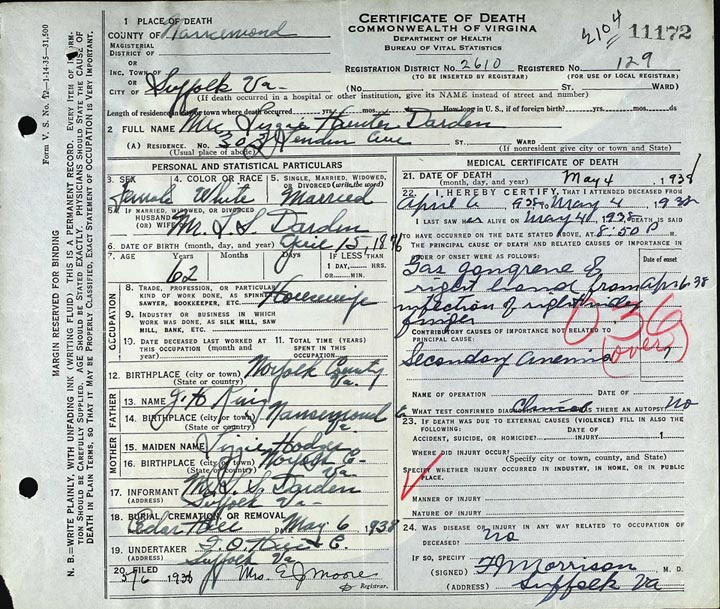 CERTIFICATE OF DEATH
COMMONWEALTH OF VIRGINIA
DEPARTMENT OF HEALTH
BUREAU OF VITAL STATISTICS
2104 11172
1 PLACE OF DEATH
COUNTY OF Nansemond
MAGISTERIAL DISTRICT OF
OR
INC. TOWN OF
OR
CITY OF Suffolk Va.
REGISTRATION DISTRICT NO. 2610 REGISTERED NO. 129
(TO BE INSERTED BY REGISTRAR) (FOR USE OF LOCAL REGISTRAR)
(No. ST. WARD)
(If death occurred in a hospital or other institution, give its NAME instead of street and number)
Length of residence in city or town where death occurred yrs. mos. ds. How long in U. S., if of foreign birth? yrs. mos. ds.
2 FULL NAME Mrs. Lizzie Hunter Darden
(A) RESIDENCE. No. 303 Ave ST. WARD
(Usual place of abode) (If nonresident give city or town and State)
PERSONAL AND STATISTICAL PARTICULARS
3. SEX Female
4. COLOR OR RACE White
5. SINGLE, MARRIED, WIDOWED, OR DIVORCED (write the word) Married
5A. IF MARRIED, WIDOWED, OR DIVORCED
HUSBAND OF
(OR) WIFE OF Mr. L S Darden
6. DATE OF BIRTH (month, day, and year) April 15, 18
7. AGE Years 62 Months Days IF LESS THAN 1 DAY, HRS. OR MIN.
OCCUPATION
8. TRADE, PROFESSION, OR PARTICULAR KIND OF WORK DONE, AS SPINNER, SAWYER, BOOKKEEPER, ETC. Housewife
9. INDUSTRY OR BUSINESS IN WHICH WORK WAS DONE, AS SILK MILL, SAW MILL, BANK, ETC.
10. DATE DECEASED LAST WORKED AT THIS OCCUPATION (month and year)
11. TOTAL TIME (YEARS) SPENT IN THIS OCCUPATION
12. BIRTHPLACE (city or town) (State or country) Norfolk County Va.
FATHER
13. NAME J. H. King
14. BIRTHPLACE (city or town) (State or country) Nansemond Co Va
MOTHER
15. MAIDEN NAME Lizzie Hodges
16. BIRTHPLACE (city or town) (State or country) Norfolk Co Va
17. INFORMANT Mr. L. S. Darden
(ADDRESS) Suffolk Va
18. BURIAL, CREMATION, OR REMOVAL
Cedar Hill DATE May 6 1938
19. UNDERTAKER
(ADDRESS) Suffolk Va
20. FILED 5/6 1938 Mrs. E J Moore
Registrar.
MEDICAL CERTIFICATE OF DEATH
21. DATE OF DEATH (month, day, and year) May 4, 1938
22. I HEREBY CERTIFY, THAT I ATTENDED DECEASED FROM
April 6 1938 TO May 4 1938
I LAST SAW H ER ALIVE ON May 4 1938 DEATH IS SAID
TO HAVE OCCURRED ON THE DATE STATED ABOVE, AT 8:50 P M.
THE PRINCIPAL CAUSE OF DEATH AND RELATED CAUSES OF IMPORTANCE IN
ORDER OF ONSET WERE AS FOLLOWS: Date of onset
Gas gangrene of
right hand from Apr 6 38
infection of right middle
finger
CONTRIBUTORY CAUSES OF IMPORTANCE NOT RELATED TO PRINCIPAL CAUSE:
Secondary anemia ?
036
(over)
NAME OF OPERATION DATE OF
WHAT TEST CONFIRMED DIAGNOSIS? Clinical WAS THERE AN AUTOPSY? No
23. IF DEATH WAS DUE TO EXTERNAL CAUSES (VIOLENCE) FILL IN ALSO THE FOLLOWING:
ACCIDENT, SUICIDE, OR HOMICIDE? DATE OF INJURY 1
WHERE DID INJURY OCCUR?
(Specify city or town, county, and State)
SPECIFY WHETHER INJURY OCCURRED IN INDUSTRY, IN HOME, OR IN PUBLIC PLACE.
MANNER OF INJURY
NATURE OF INJURY
24. WAS DISEASE OR INJURY IN ANY WAY RELATED TO OCCUPATION OF DECEASED? No
IF SO, SPECIFY
(SIGNED) F Morrison M. D.
(ADDRESS) Suffolk Va
Form V. S. No. 12—1-14-35—31,500
MARGIN RESERVED FOR BINDING
N. B.—WRITE PLAINLY, WITH UNFADING INK (WRITING FLUID). THIS IS A PERMANENT RECORD. EVERY ITEM OF INFORMATION SHOULD BE CAREFULLY SUPPLIED. AGE SHOULD BE STATED EXACTLY. PHYSICIANS SHOULD STATE THE CAUSE OF DEATH IN PLAIN TERMS, SO THAT IT MAY BE PROPERLY CLASSIFIED. EXACT STATEMENT OF OCCUPATION IS VERY IMPORTANT.